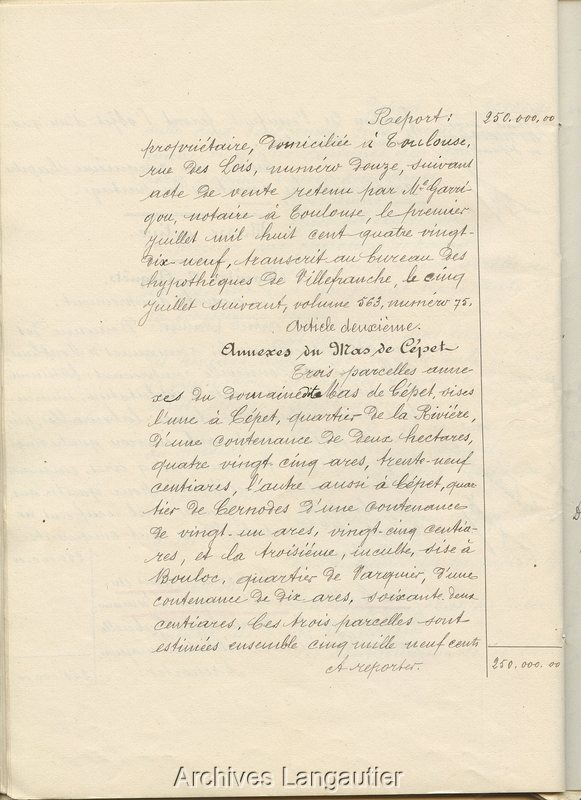 Report: 250.000,00
propriétaire, domiciliée à Toulouse,
rue des Lois, numéro douze, suivant
acte de vente retenu par Me Garri-
gou, notaire à Toulouse, le premier
juillet mil huit cent quatre vingt-
dix neuf, transcrit au bureau des
hypothèques de Villefranche, le cinq
juillet suivant, volume 563, numéro 75.
Article deuxième.
Annexes du Mas de Cépet
Trois parcelles anne-
xes du domaine dit Mas de Cépet, sises
l'une à Cépet, quartier de la Rivière,
d'une contenance de deux hectares,
quatre vingt cinq ares, trente-neuf
centiares, l'autre aussi à Cépet, quar
tier de Cernodes d'une contenance
de vingt-un ares, vingt-cinq centia-
res, et la troisième, inculte, sise à
Bouloc, quartier de Varquier, d'une
contenance de dix ares, soixante deux
centiares. Ces trois parcelles sont
estimées ensemble cinq mille neuf cents
A reporter. 250.000.00
Archives Langautier